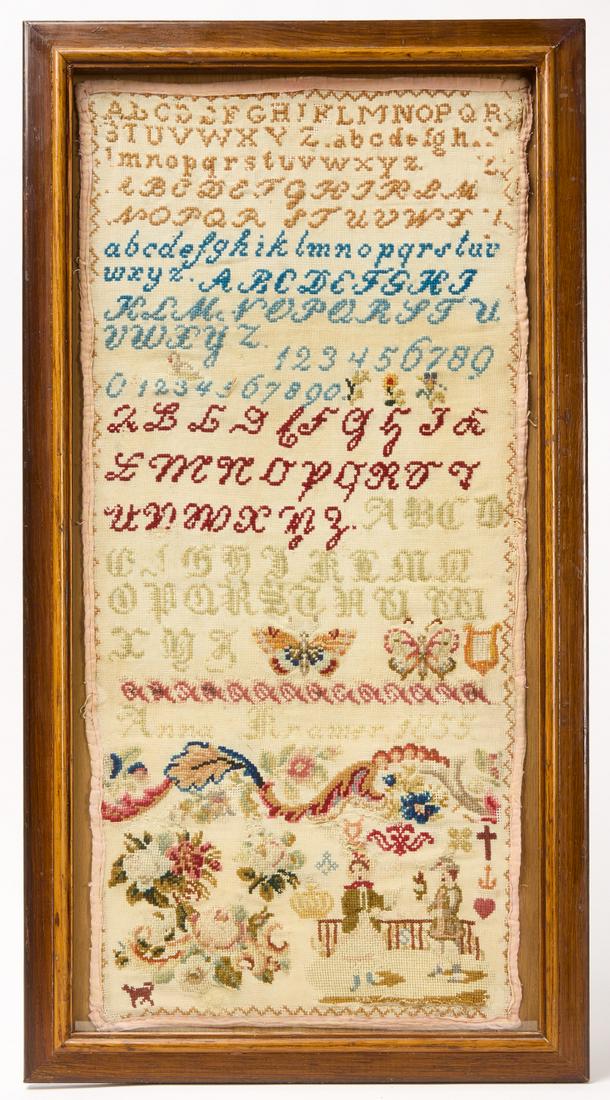 ABCDEFGHIFLMNOPQR
STUVWXYZ.abcdefgh.
lmnopqrstuvwxyz
ABCDEFGHIKLM
NOPQRSTUVWX
abcdefghiklmnopqrstuv
wxyz. ABCDEFGHI
KLM.NOPQRSTU
VWXYZ.
1234567890
01234567890
ABCDEFGHIK
LMNOPQRST
UVWXYZ. ABCD
EFGHIKLMN
OPQRSTUVW
XYZ
Anna Kramer. 1855